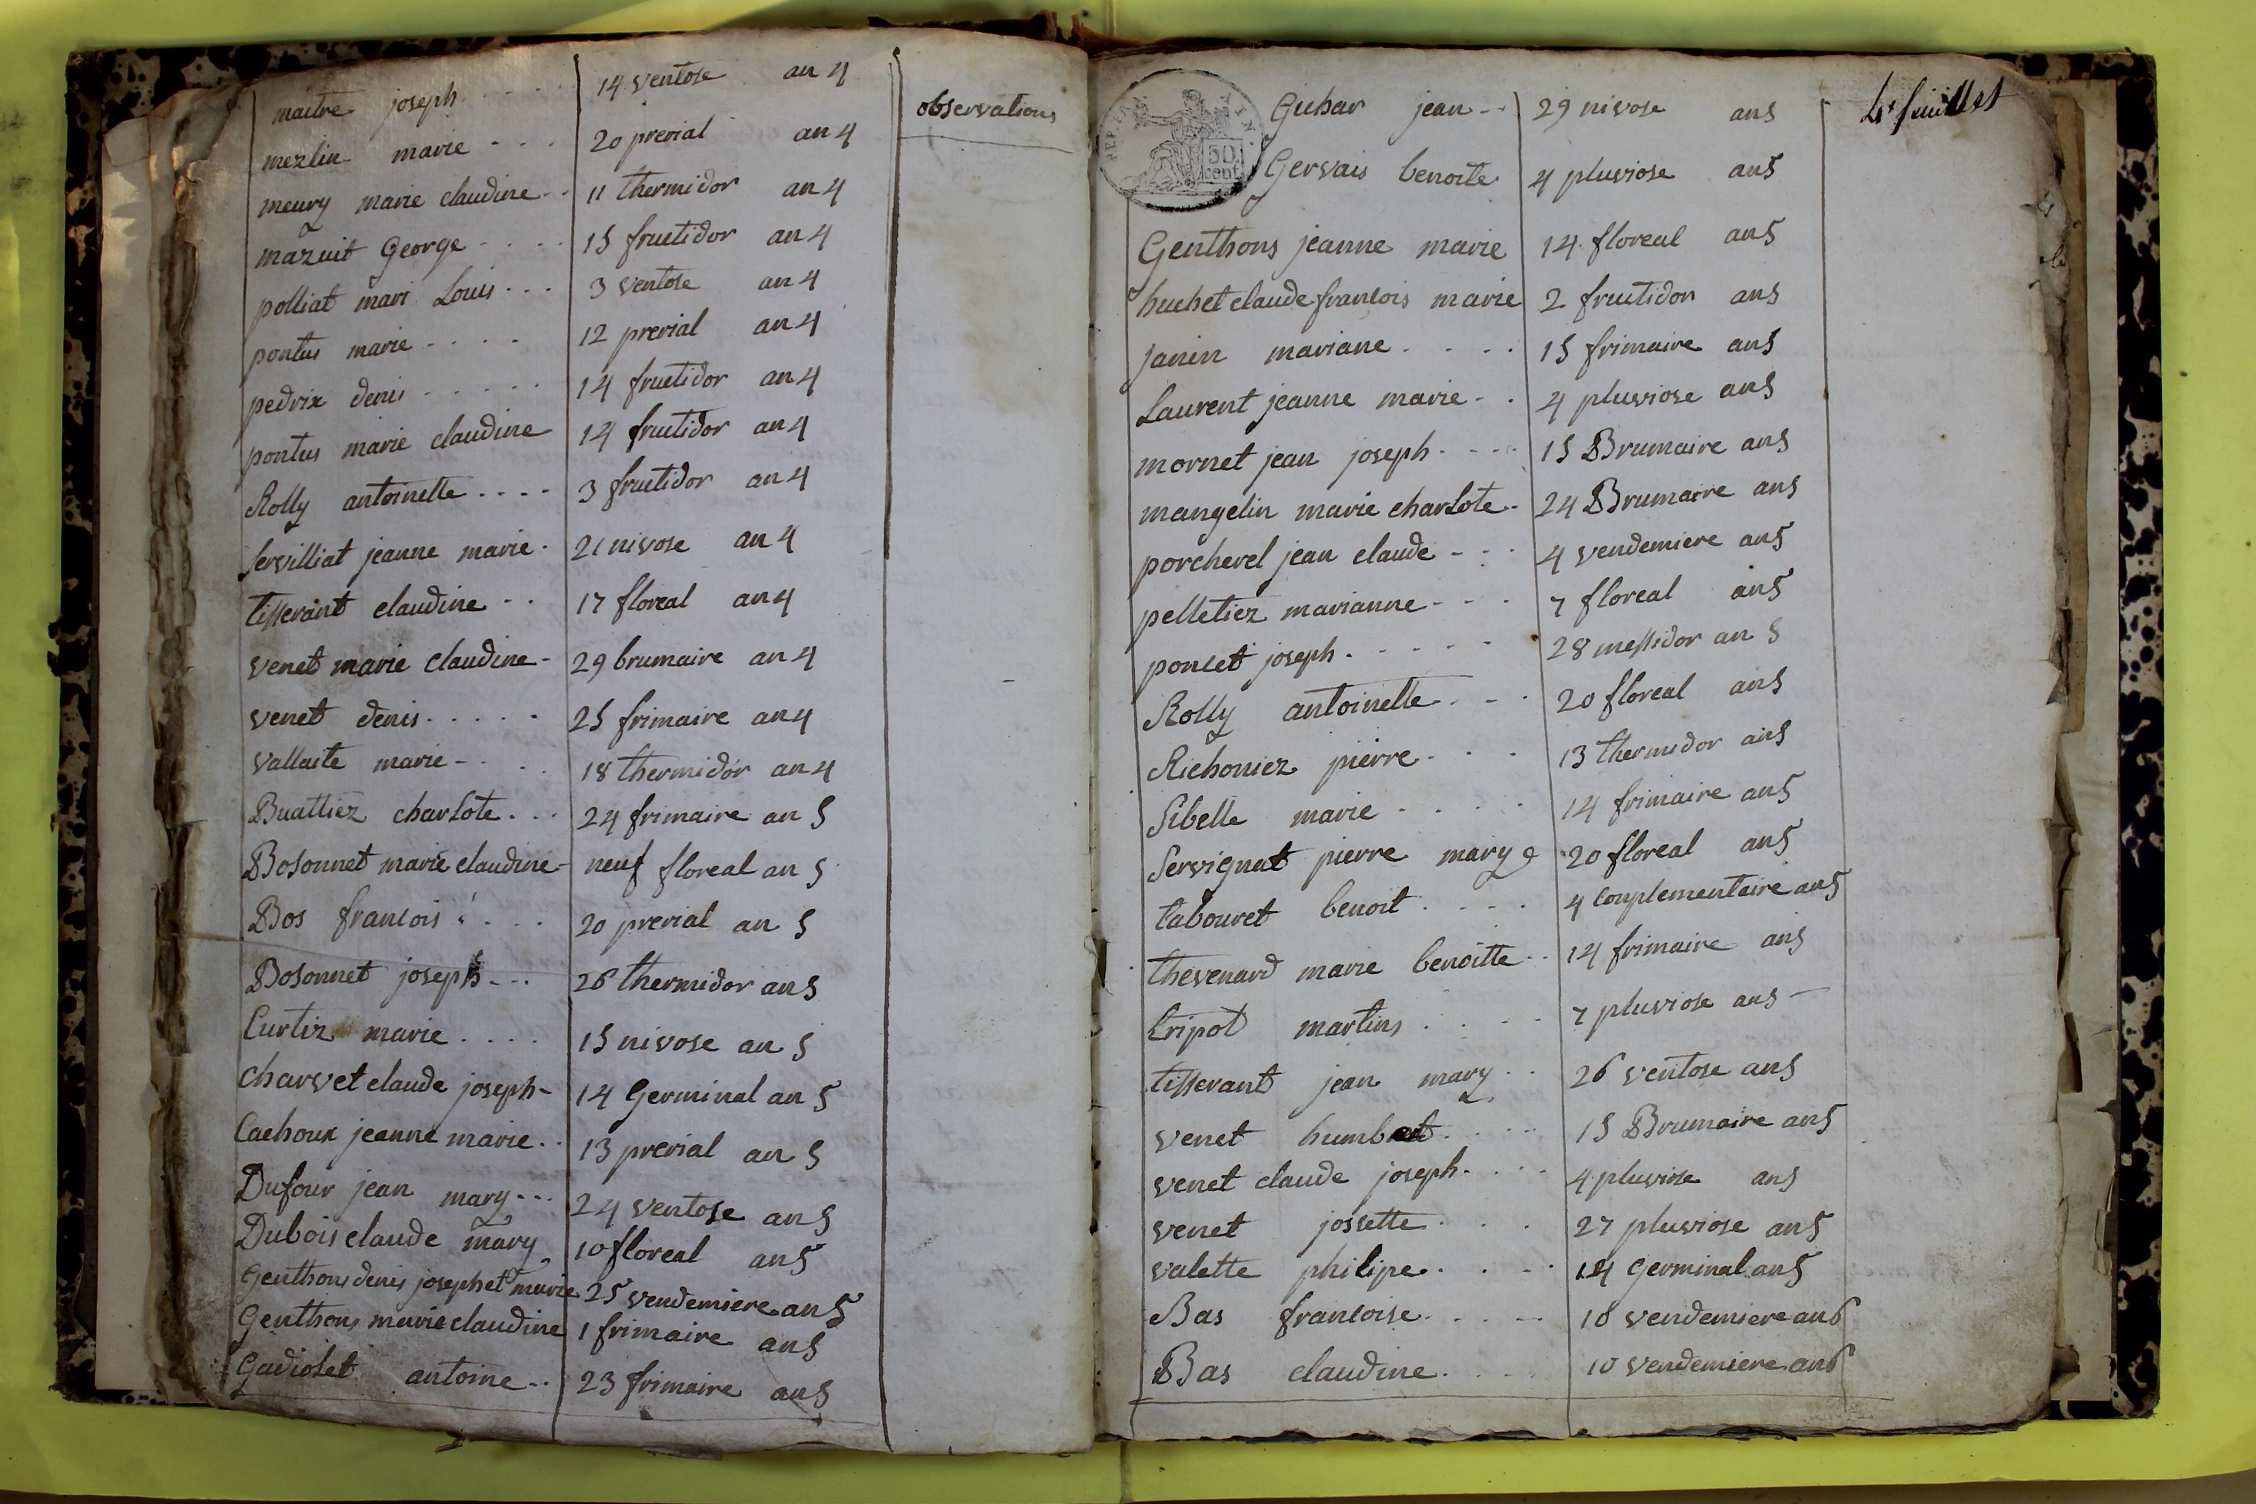 maitre joseph 14 ventose an 4
mezlin marie 20 prerial an 4
meury marie claudine 11 thermidor an 4
mazuit George 15 fructidor an 4
polliat mari Louis 3 ventose an 4
pontus marie 12 prerial an 4
pedrix denis 14 fructidor an 4
pontus marie claudine 14 fruitidor an 4
Rolly antoinette 3 fructidor an 4
Servilliat jeanne marie 21 nivose an 4
tisserant claudine 17 floreal an 4
venet marie claudine 29 brumaire an 4
venet denis 25 frimaire an 4
vallaite marie 18 thermidor an 4
Buattiez charlote 24 frimaire an 5
Bosonnet marie claudine neuf floreal an 5
Bos francois 20 prerial an 5
Bosonnet joseph 26 thermidor an 5
Curtiz marie 15 nivose an 5
Charvet claude joseph 14 Germinal an 5
Cachoux jeanne marie 13 prerial an 5
Dufour jean mary 24 ventose an 5
Dubois claude mary 10 floreal an 5
Genthons denis joseph et marie 25 vendemiere an 5
Genthons marie claudine 1 frimaire an 5
Gadiolet antoine 23 frimaire an 5
observations
REP. FRA. TIN.
50
cent.
4e feuillet
Guhar jean 29 nivose an 5
Gervais benoite 4 pluviose an 5
Genthons jeanne marie 14 floreal an 5
huchet claude francois marie 2 fruitidor an 5
Janin mariane 15 frimaire an 5
Laurent jeanne marie 4 pluviose an 5
mornet jean joseph 15 Brumaire an 5
mangelin marie charlote 24 Brumaire an 5
porcherel jean claude 4 vendemiere an 5
pelletiez marianne 7 floreal an 5
poncet joseph 28 messidor an 5
Rolly antoinette 20 floreal an 5
Richoniez pierre 13 thermidor an 5
Sibelle marie 14 frimaire an 5
Servignat pierre mary 20 floreal an 5
tabouret benoit 4 complementaire an 5
thevenard marie benoitte 14 frimaire an 5
tripot martins 7 pluviose an 5
tisserant jean mary 26 ventose an 5
venet humbert 15 Brumaire an 5
venet claude joseph 4 pluviose an 5
venet jossette 27 pluviose an 5
valette philipe 14 Germinal an 5
Bas francoise 10 vendemiere an 6
Bas claudine 10 vendemiere an 6